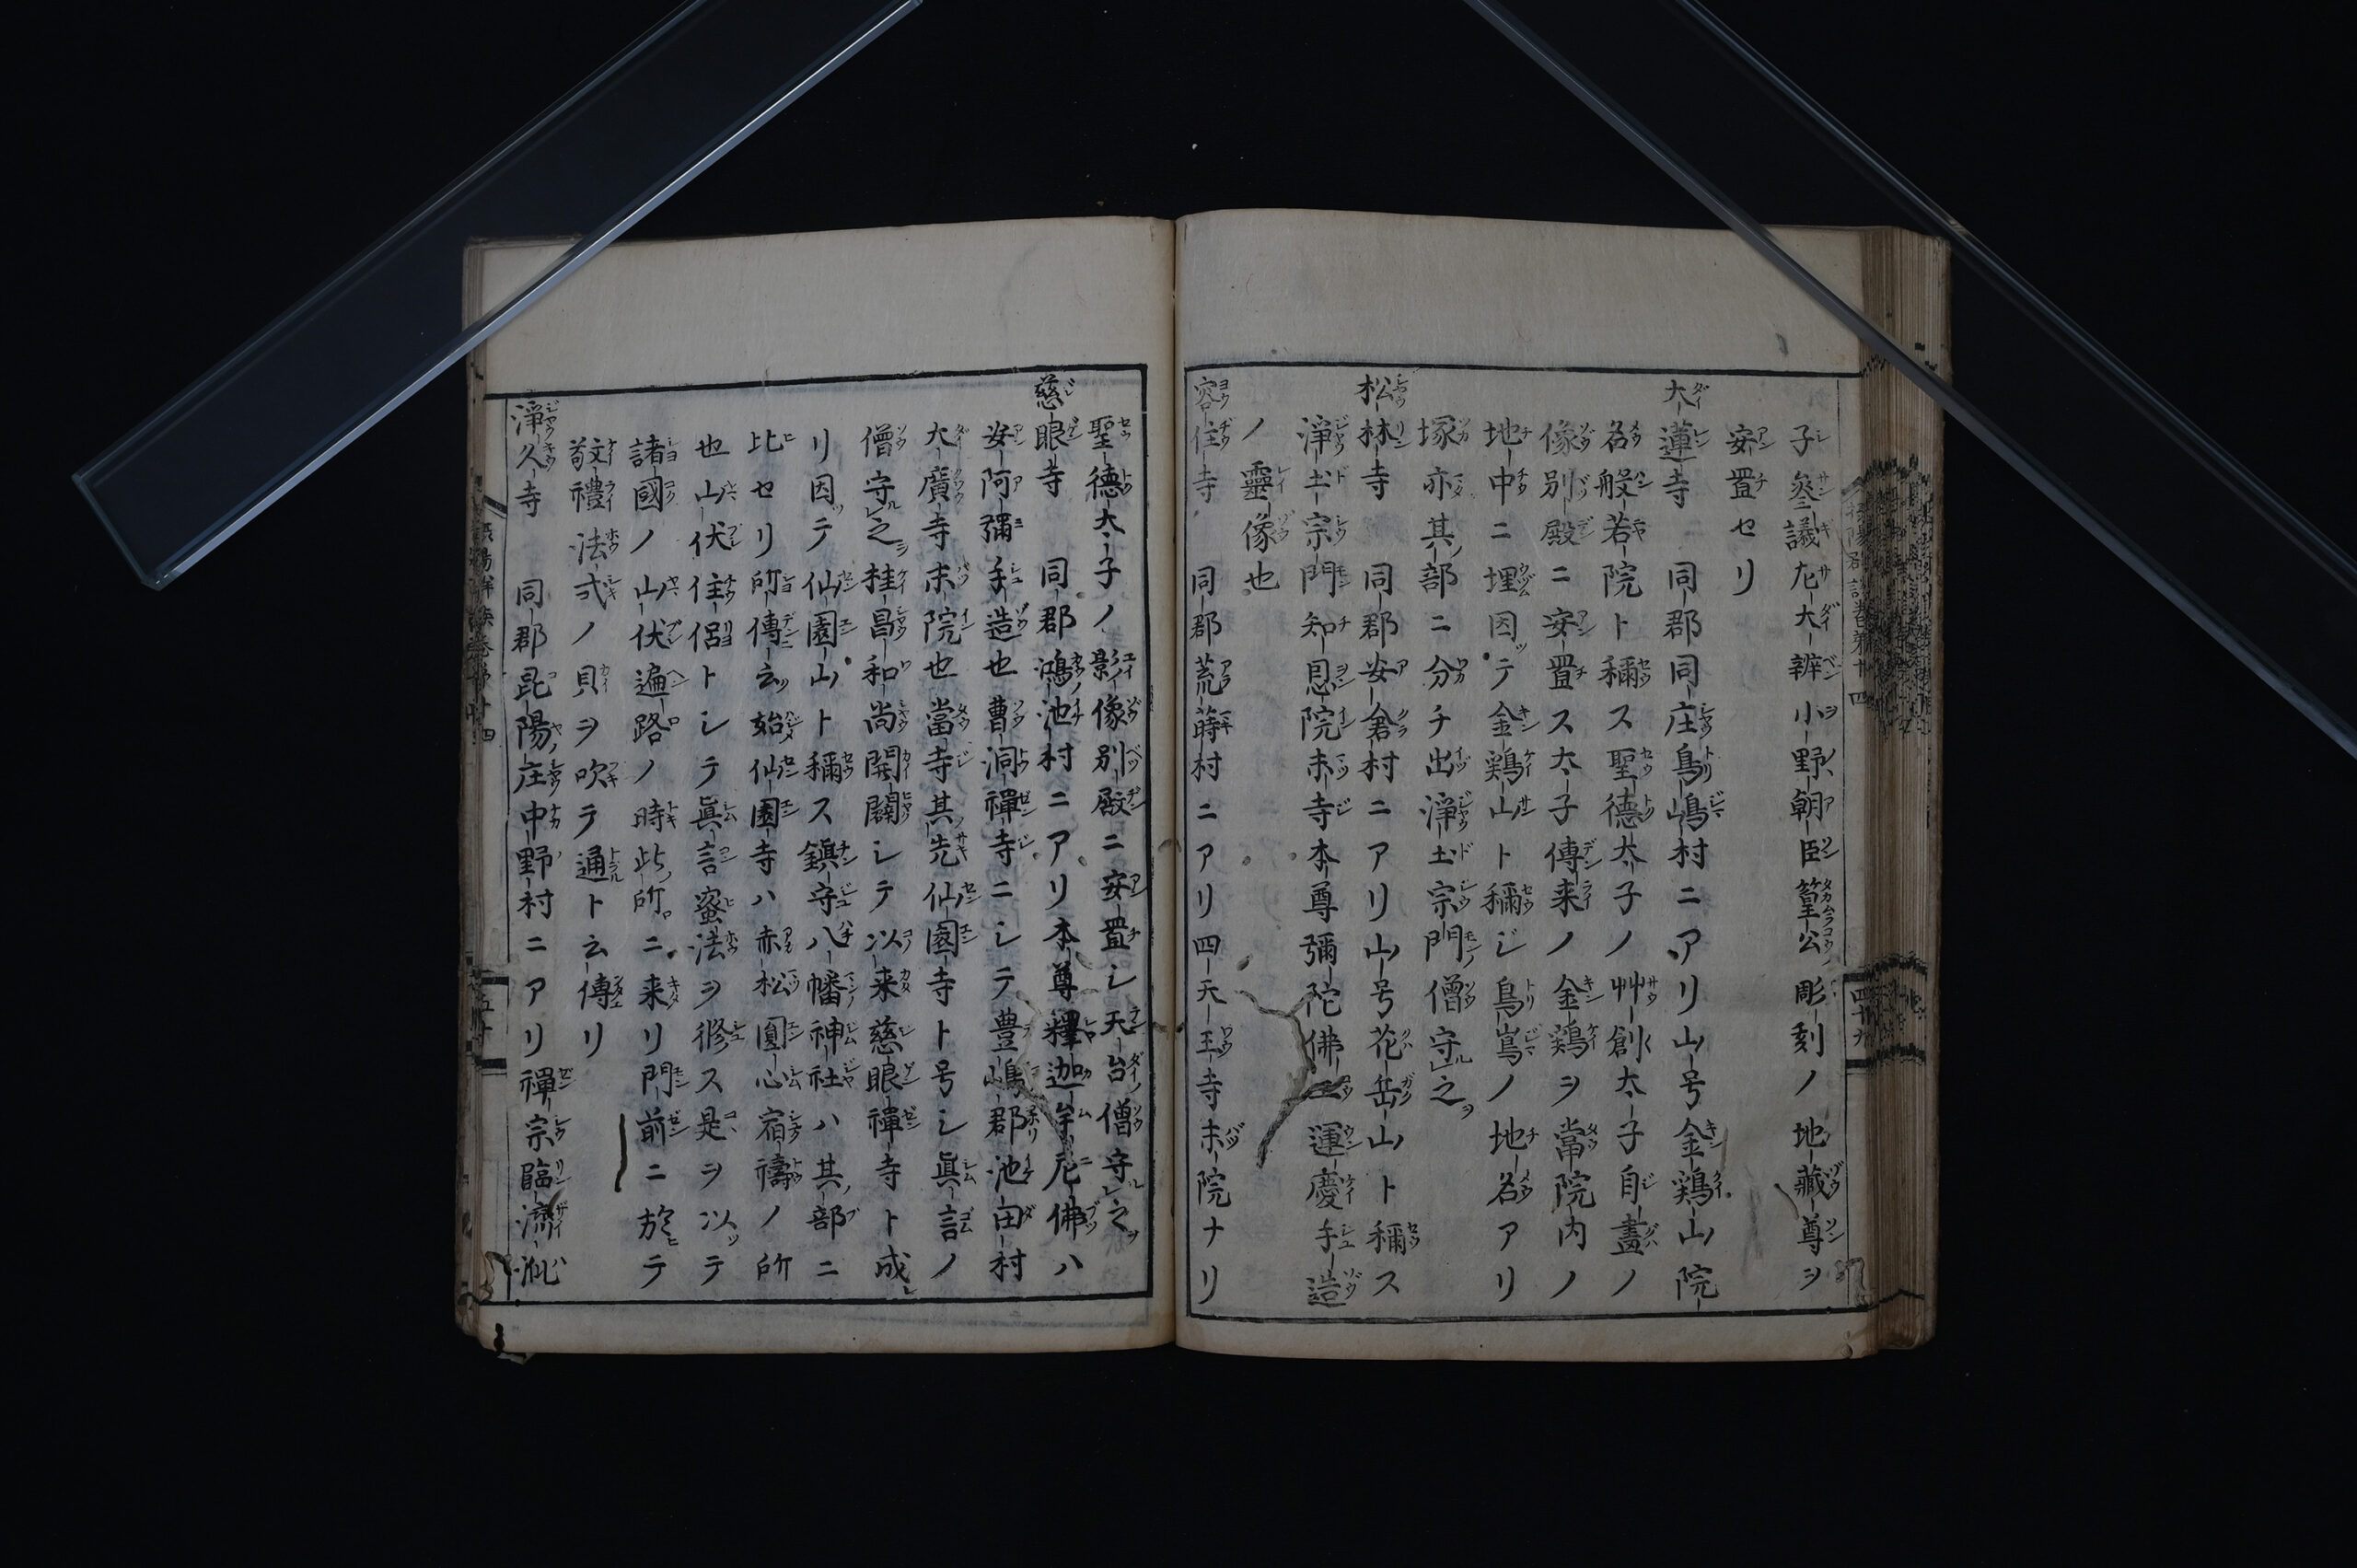 子参議左大辨小野朝臣篁公彫刻ノ地藏尊ヲ
安置セリ
大蓮寺 同郡同庄鳥嶋村ニアリ山号金鶏山院
名般若院ト稱ス聖德太子ノ艸創太子自畫ノ
像別殿ニ安置ス太子傳来ノ金鶏ヲ當院内ノ
地中ニ埋因テ金鶏山ト稱シ鳥嶌ノ地名アリ
塚亦其部ニ分チ出淨土宗門僧守之
松林寺 同郡安倉村ニアリ山号花岳山ト稱ス
淨土宗門知恩院末寺本尊彌陀佛運慶手造
ノ靈像也
容住寺 同郡荒蒔村ニアリ四天王寺末院ナリ
聖德太子ノ影像別殿ニ安置シ天台僧守之
慈眼寺 同郡鴻池村ニアリ本尊釋迦牟尼佛ハ
安阿彌手造也曹洞禪寺ニシテ豊嶋郡池田村
大廣寺末院也當寺其先仙園寺ト号シ眞言ノ
僧守之桂昌和尚開闢シテ以来慈眼禪寺ト成
リ因テ仙園山ト稱ス鎮守八幡神社ハ其部ニ
比セリ所傳云始仙園寺ハ赤松圓心宿禱ノ所
也山伏住侶トシテ眞言蜜法ヲ修ス是ヲ以テ
諸國ノ山伏遍路ノ時此所ニ来リ門前ニ於テ
敬禮法式ノ貝ヲ吹テ通ト云傳リ
淨久寺 同郡昆陽庄中野村ニアリ禪宗臨済派